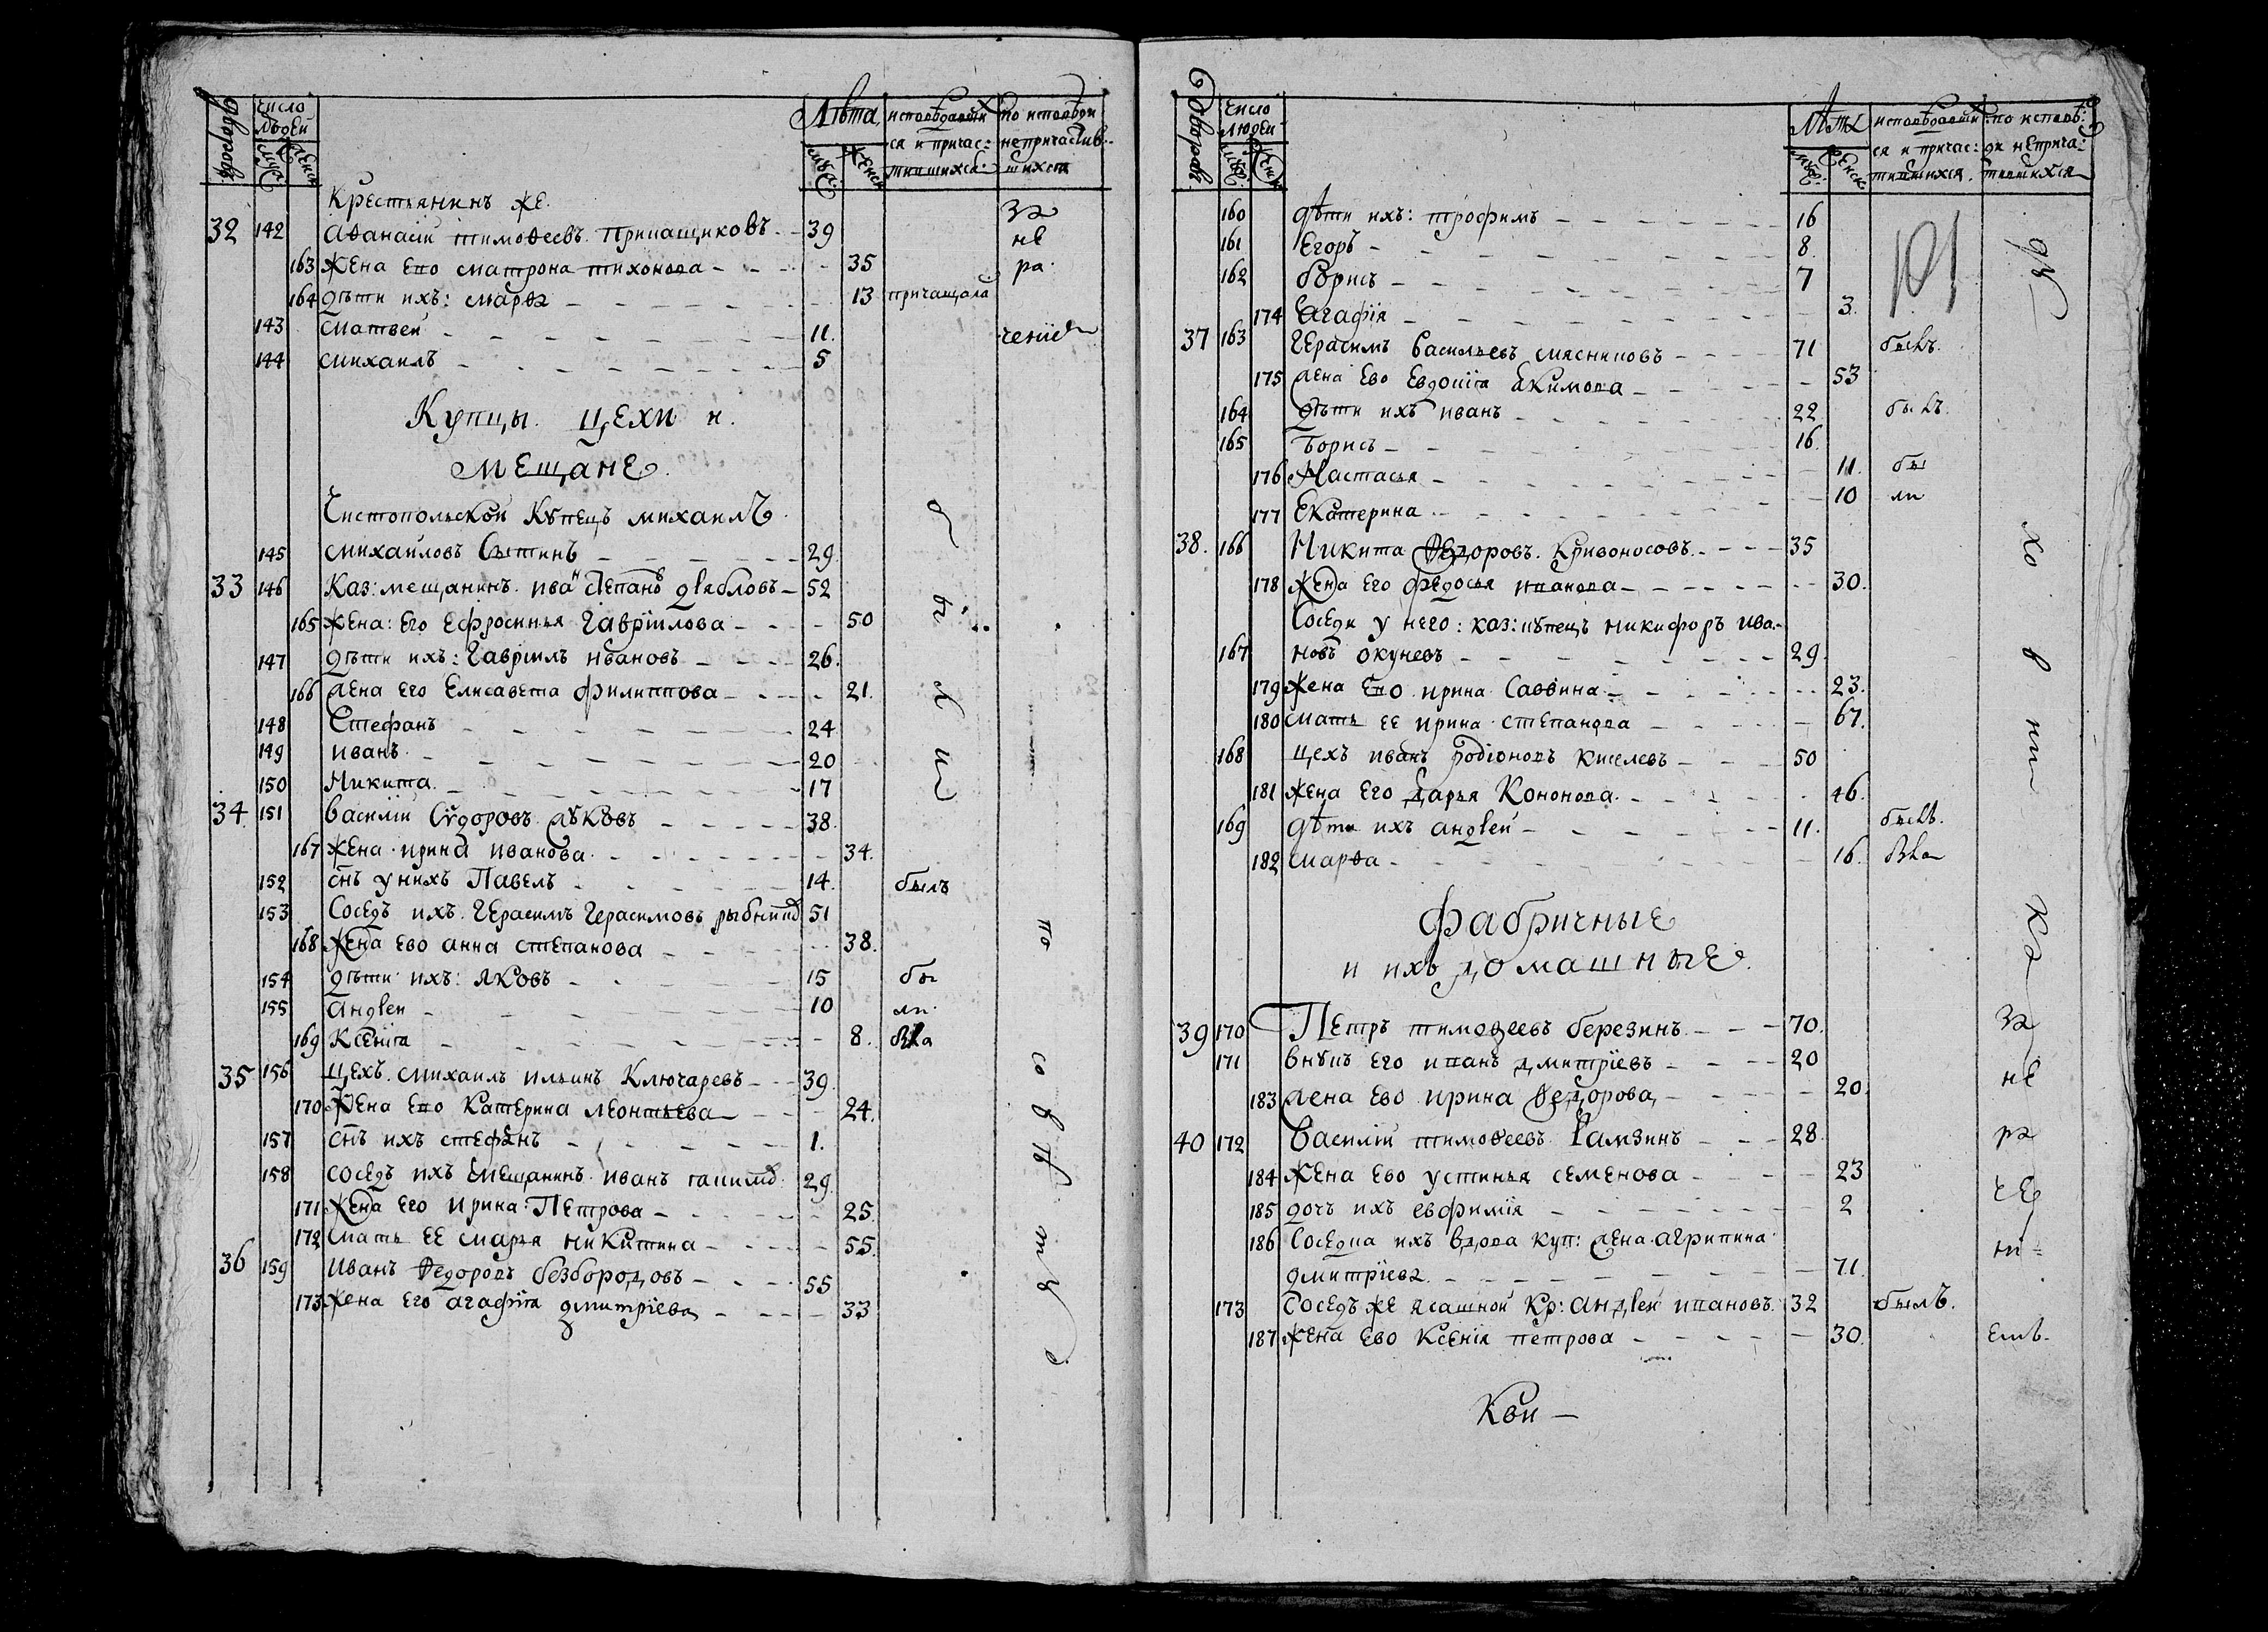 дворовъ
число людей
муж:
женск
Лѣта
муж:
женск
исповѣдавши
ся и причас:
тившихся:
по исповѣди
непричастив-
шихся
Крестьянинъ же.
32 142 Аѳанасіи тимоѳеевъ 39
163 жена ево матрона тихонова 35
164 дѣти ихъ: марѳа 13 причащала
143 матвеи 11.
144 михаилъ 5
за
не
ра
чениe
Купцы. цехи и.
мещане.
Чистопольскои Купецъ михаилъ
145 михаиловъ Сытинъ 29.
33 146 Каз: мещанинъ. иванъ степановъ дряблов 52
165 жена: его ефросинья гавріилова 50
147 дѣти ихъ: гавріилъ ивановъ 26.
166 жена его елисавета филиппова 21.
148 Стефанъ 24
149 иванъ 20
150 Никита 17
34 151 Василіи Сидоровъ 38.
167 жена ирина иванова 34.
152 снъ у нихъ Павелъ 14. былъ
153 Соседъ ихъ герасимъ герасимовъ 51
168 жена ево анна степанова 38.
154 дѣти ихъ: яковъ 15 бы
155 андреи 10 ли
169 Ксеніа 8.
35 156 цехъ. михаилъ ильинъ Ключаревъ 39.
170 жена ево катерина леонтьева 24.
157 снъ ихъ стефанъ 1.
158 соседъ ихъ мещанинъ иванъ 29.
171 жена его ирина Петрова 25.
172 мать ее марья никитина 55.
36 159 Иванъ Ѳедоровъ безбородовъ 55
173 жена его агафіа дмитріева 33
б
ы
л
и
по
со
в
ѣ
ту
дворовъ
число
людеи
муж:
женск
Лѣта
муж:
женск
исповѣдавши
ся и причас:
тившихся.
по исповѣ:
ди неприча:
стившихся
101
160 дѣти ихъ: трофимъ 16
161 Егоръ 8.
162 борисъ 7
174 Агафія 3.
37 163 Герасимъ Васильевъ мясниковъ 71 былъ.
175 жена ево Евдокіа Екимова 53
164 дѣти ихъ иванъ 22 былъ.
165 борисъ 16.
176 Настасья 11. бы
177 Екатерина 10 ли
38. 166 Никита Ѳедоровъ. Кривоносовъ 35
178 жена его федосья иванова 30.
Соседи у него: каз: купецъ никифоръ ива-
167 новъ окуневъ 29.
179 жена ево ирина Саввина 23.
180 мать ее ирина степанова 67.
168 цехъ иванъ родіоновъ киселевъ 50
181 жена его дарья Кононова 46.
169 дѣти ихъ андреи 11. былъ.
182 марѳа 16.
ду
хо
в
ни
ка
Фабричные
и ихъ домашные.
39 170 Петръ тимоѳеевъ березинъ 70.
171 внукъ его иванъ дмитріевъ 20
183 жена ево ирина Ѳедорова 20.
40 172 Василіи тимоѳеевъ Рамзинъ 28.
184 жена ево устинья семенова 23
185 дочь ихъ евфимія 2
186 Соседка ихъ вдова куп: жена агрипина
дмитріева 71.
173 Соседъ же ясашнои кр: андреи ивановъ. 32 былъ.
187 жена ево Ксенія петрова 30.
за
не
ра
че
ни-
емъ.
Кои —